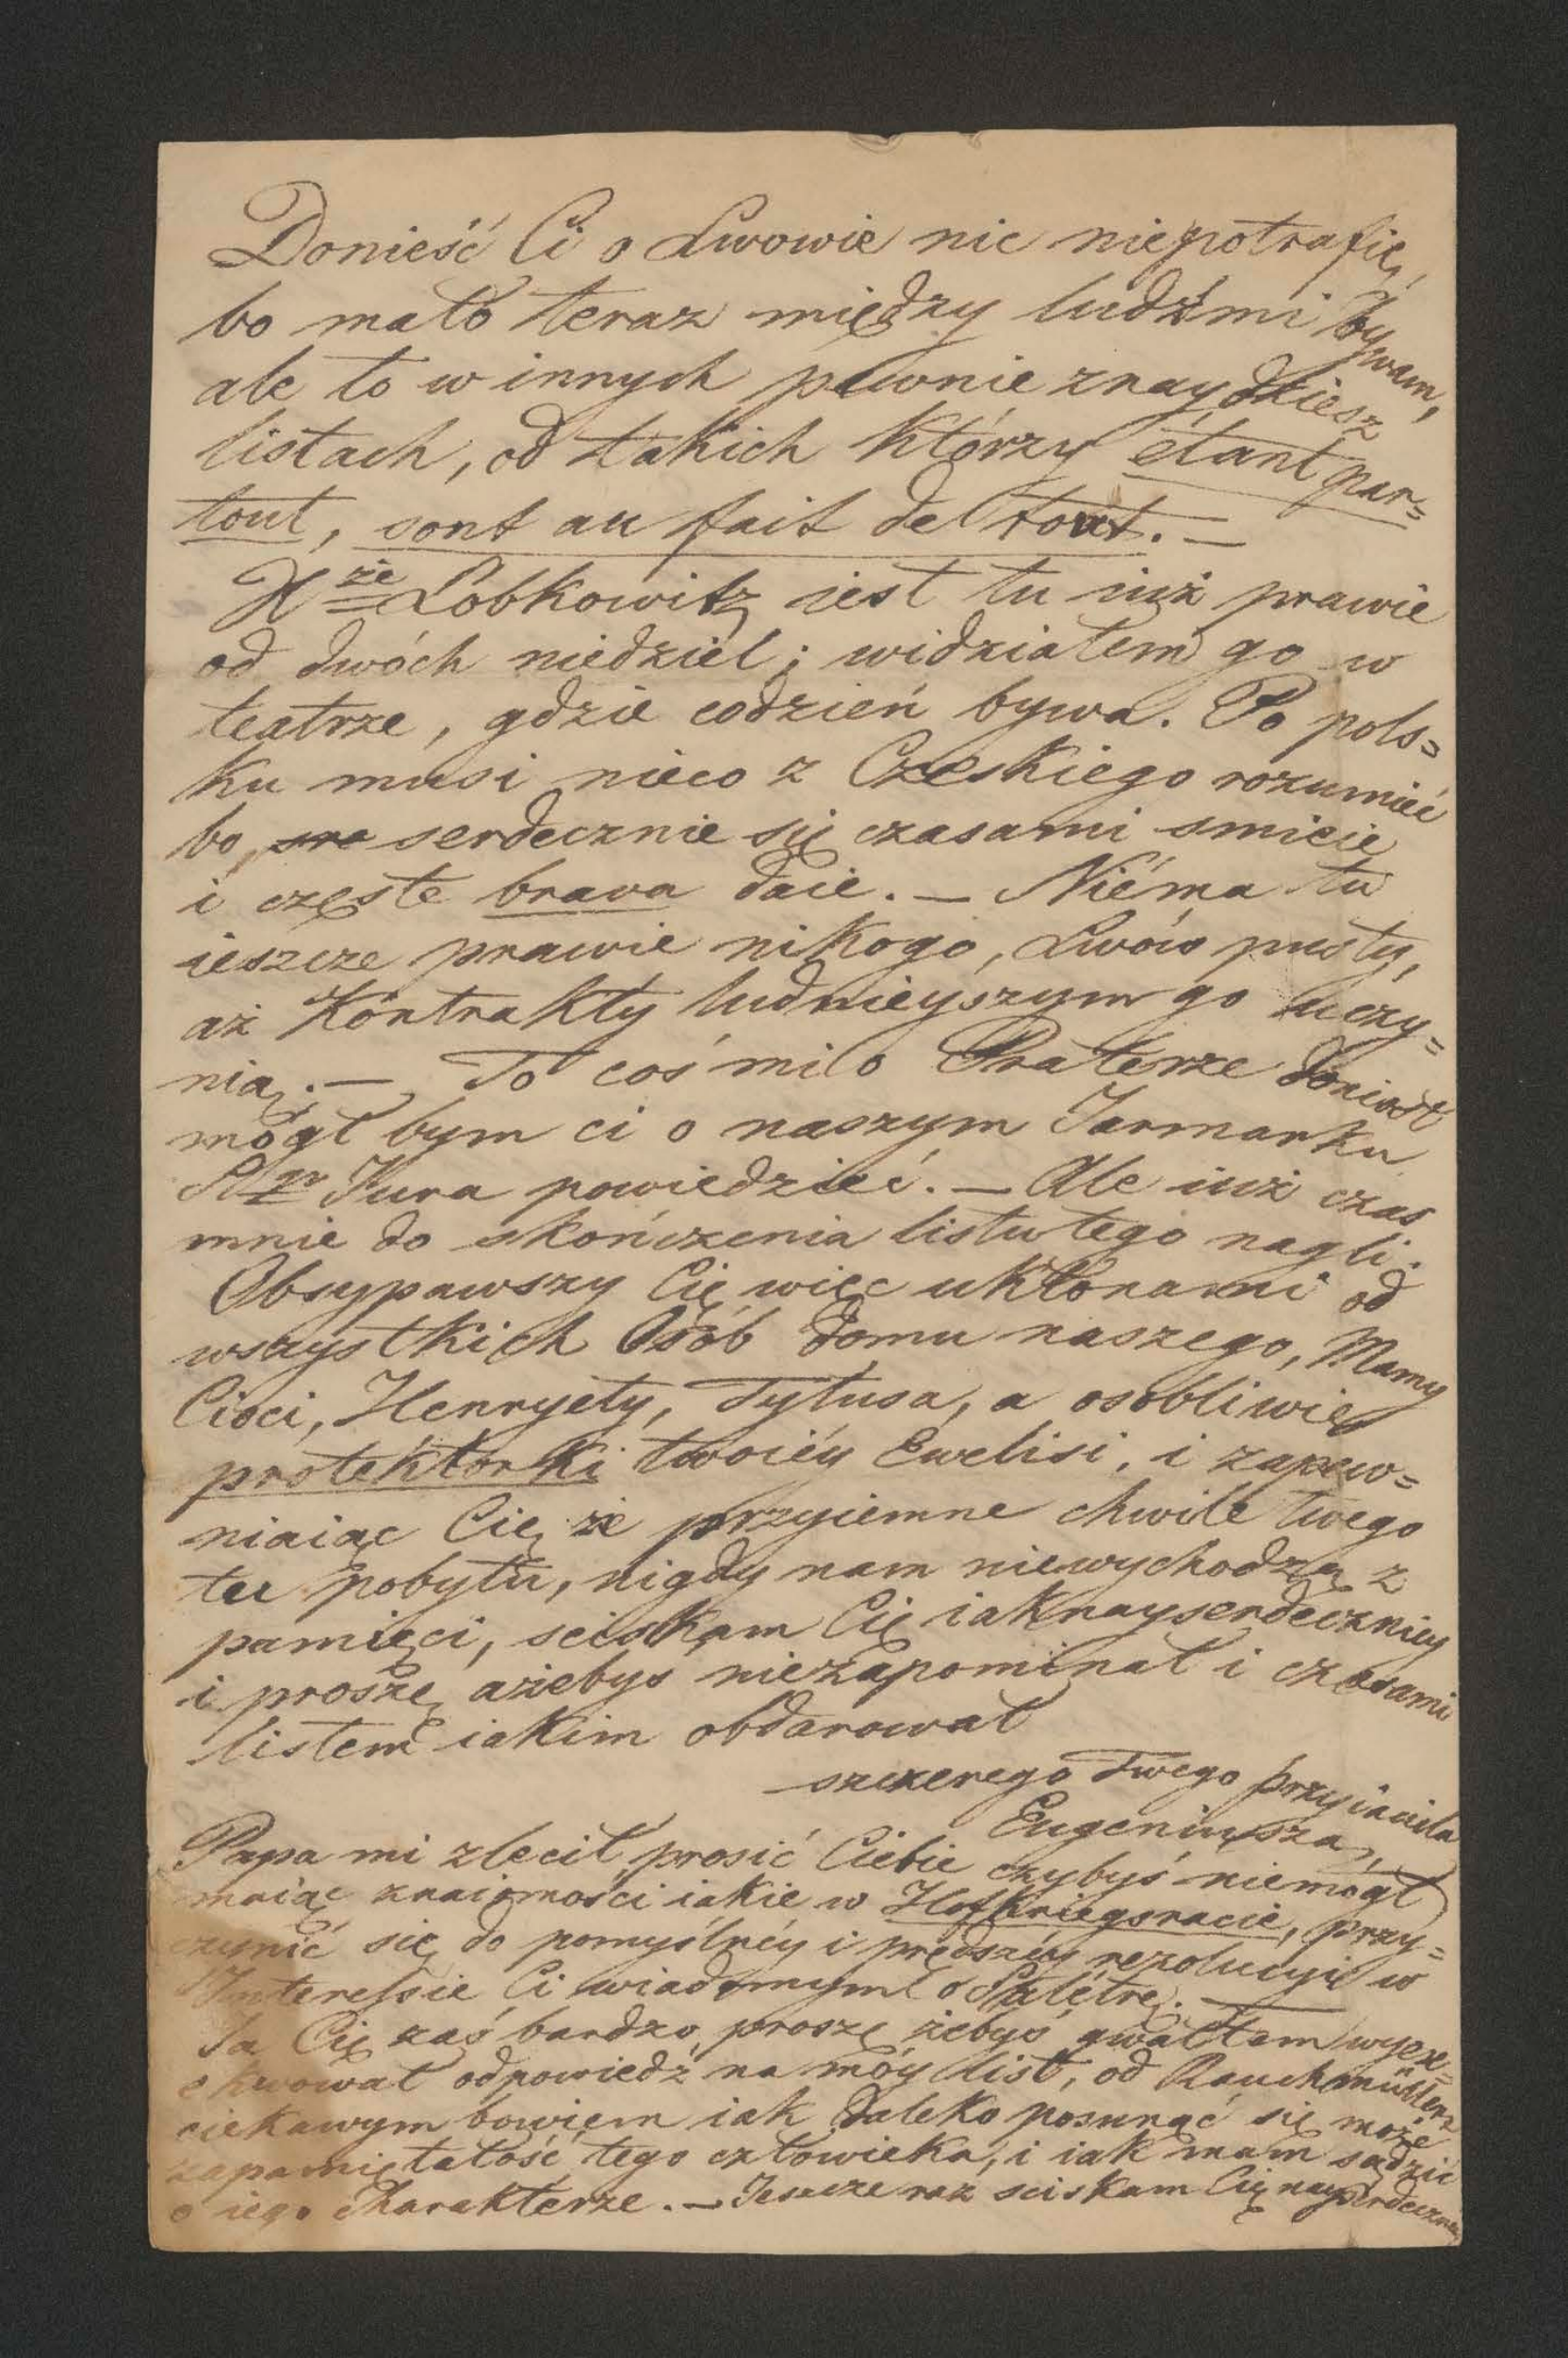 Donieść Ci o Lwowie nic niepotrafię,
bo mało teraz między ludźmi bywam,
ale to w innych pewnie znaydziesz
listach, od takich którzy étant par=
tout, sont au fait de tout. —
Xże Lobkowitz iest tu iuż prawie
od dwóch niedziel; widziałem go w
teatrze, gdzie codzień bywa. Po pols=
ku musi nieco z Czeskiego rozumieć
bo, serdecznie się czasami smieie
i częste brava daie. — Niéma tu
ieszcze prawie nikogo, Lwów pusty,
aż Kontrakty ludnieyszym go uczy=
nią. — To coś mi o Praterze doniósł
mógł bym ci o naszym Jarmarku
Sgo Jura powiedzieć. — Ale iuż czas
mnie do skończenia listu tego nagli.
Obsypawszy Cię więc ukłonami od
wszystkich Osób domu naszego, Mamy
Cioci, Henryety, Tytusa, a osobliwie
protektorki twoiéy Ewelisi, i zapew=
niaiąc Cię że przyiemne chwile twego
tu pobytu, nigdy nam niewychodzą z
pamięci, sciskam Cię iaknayserdeczniey
i proszę ażebys niezapominał i czasami
listem iakim obdarował
szczerego Twego przyiaciela
Eugeniusza,
Papa mi zlecił prosić Ciebie czybyś niemógł
maiąc znaiomości iakie w Hofkriegsracie, przy=
czynić się do pomyślnéy i prędszéy rezolucyi w
Interessie Ci wiadomym o Salétrę. —
Ja Cię zaś bardzo proszę żebyś gwałtem wyex=
ekwował odpowiedź na móy list, od Rauchmüllera
ciekawym bowiem iak daleko posunąć się może
zapamiętałość tego człowieka, i iak mam sądzić
o iego Charakterze. — Jeszcze raz sciskam Cię nayserdeczniey